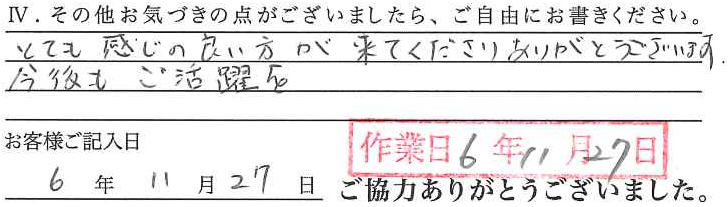 Ⅳ．その他お気づきの点がございましたら、ご自由にお書きください。
とても感じの良い方が来てくださりありがとうございます.
今後もご活躍を
お客様ご記入日
作業日6年11月27日
6年11月27日
ご協力ありがとうございました。